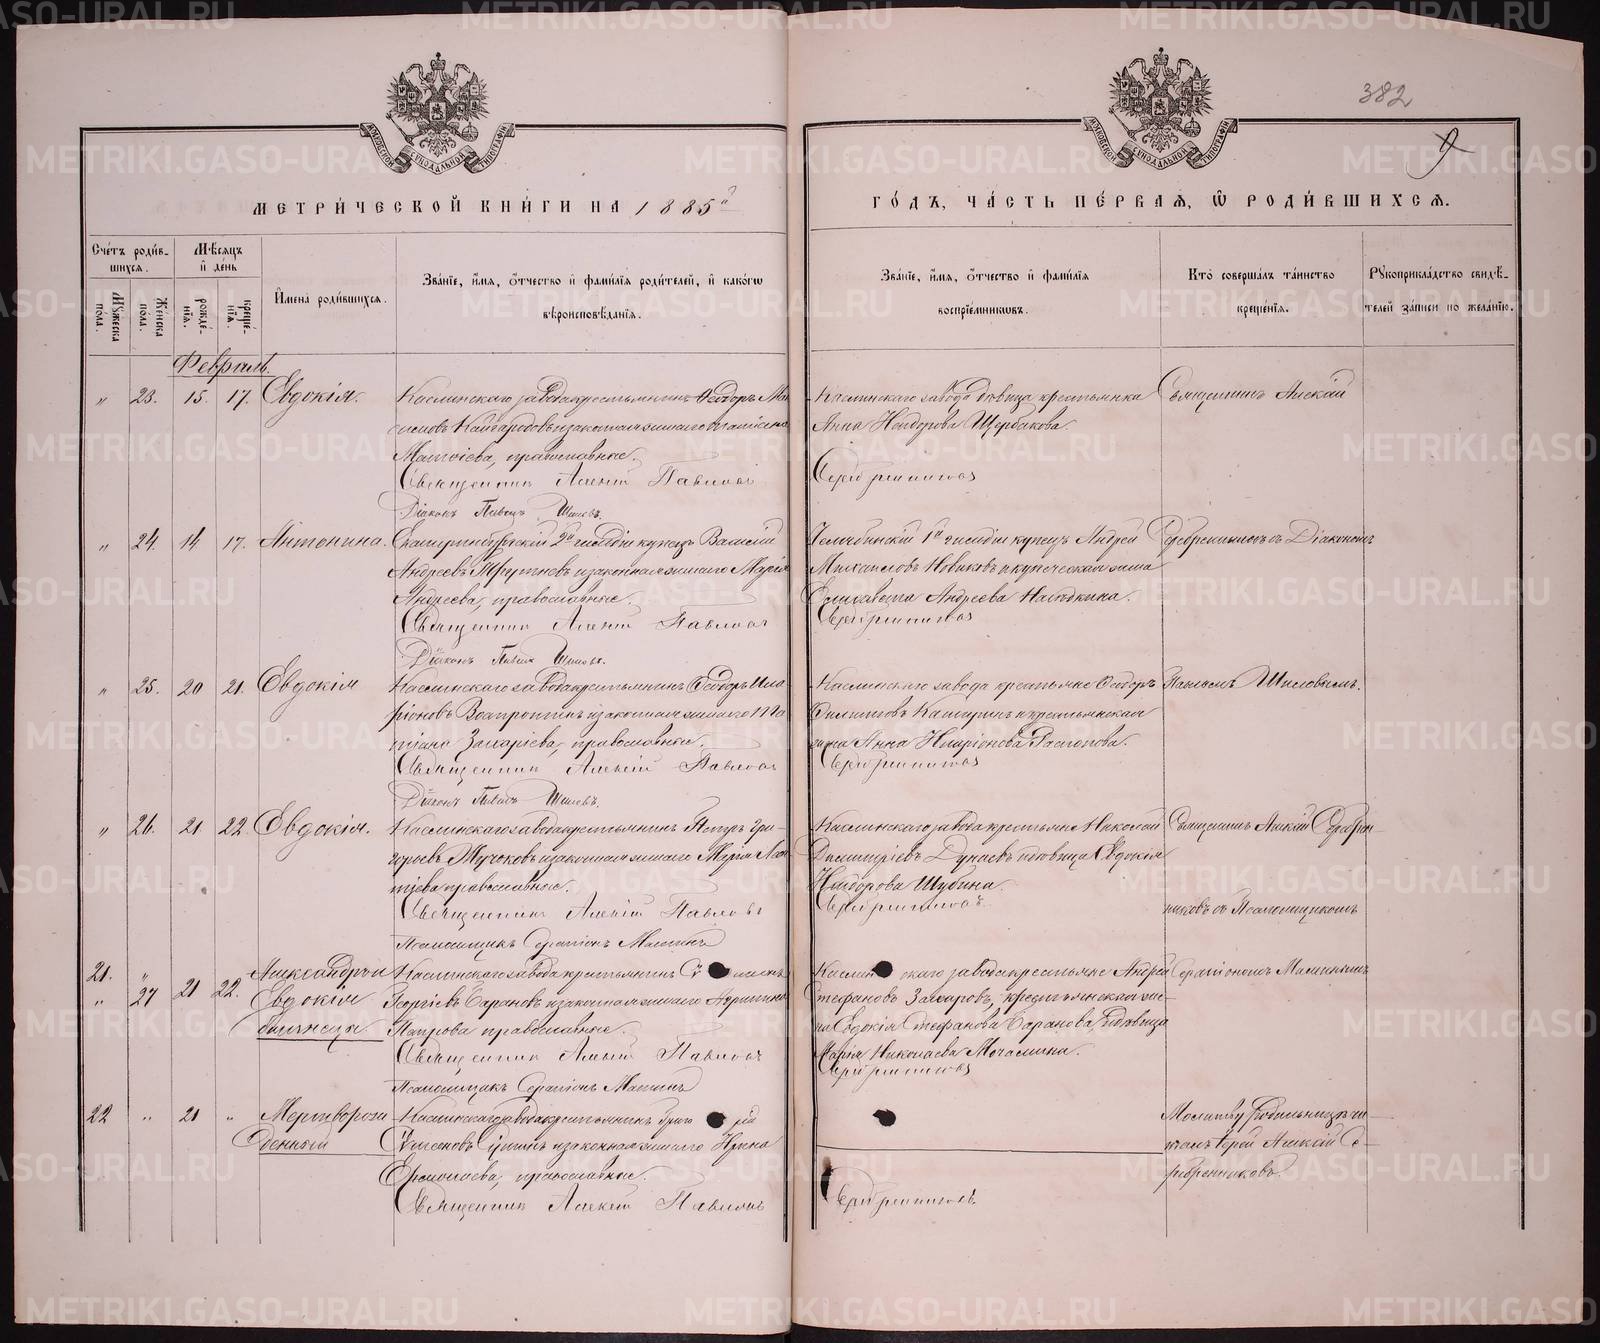 382
9
МЕТРИ́ЧЕСКОЙ КНИ́ГИ НА 1885й
ГО́ДЪ, ЧА́СТЬ ПЕ́РВАЯ, Ѡ РОДИ́ВШИХСЯ.
Сче́тъ роди́в-
шихся.
Мѣ́сяцъ
и҆ де́нь
Мꙋ́жеска по́ла.
Же́нска по́ла.
рожде́нїя.
креще́нїя.
И҆мена̀ роди́вшихся.
Зва́нїе, и҆́мя, ѻ҆́тчество и҆ фами́лїя роди́телей, и҆ како́гѡ
вѣроисповѣ́данїя.
Зва́нїе, и҆́мя, ѻ҆́тчество и҆ фами́лїя
воспрїе́мникѡвъ.
Кто̀ соверша́лъ та́инство
креще́нїя.
Рꙋкоприкла́дство свидѣ́-
телей за́писи по жела́нїю.
Февраль.
" 23. 15. 17. Евдокія.
Каслинскаго завода крестьянинъ Ѳеодоръ Мак
симовъ Кайгородовъ и законная жена его
Матѳіева, православные.
Священник Алексій Павловъ
Діаконъ Павелъ Шиловъ.
Каслинскаго завода дѣвица крестьянка
Анна Исидорова Щербакова.
Священникъ Алексій
" 24. 14. 17. Антонина.
Екатеринбургскій 2й гильдіи купецъ Василій
Андреевъ Трутневъ и законная жена его Марія
Андреева, православные.
Священник Алексій Павловъ
Діаконъ Павелъ Шиловъ.
Челябинскій 1й гильдіи купецъ Андрей
Михаиловъ Новиковъ и купеческая жена
Елисавета Андреева Наслѣдкина.
Серебренниковъ съ Діакономъ
" 25. 20 21. Евдокія
Каслинскаго завода крестьянинъ Ѳеодоръ Ила
ріоновъ Востротинъ и законная жена его Та
тіана Захаріева, православные.
Священник Алексій Павловъ
Діаконъ Павелъ Шиловъ.
Каслинскаго завода крестьяне Ѳеодоръ
Филиповъ Кашгринъ и крестьянская
жена Анна Иларіонова Распопова.
Павломъ Шиловымъ.
" 26. 21 22. Евдокія.
Каслинскаго завода крестьянинъ Петръ Гри-
горьевъ и законная жена его Марія
православные.
Священник Алексій Павловъ
Псаломщикъ Серапіонъ Малинъ
Каслинскаго завода крестьяне Николай
Димитріевъ Дунаевъ и дѣвица Евдокія
Исидорова Шубина.
Священникъ Алексій Серебрен-
никовъ съ Псаломщикомъ
21. " 21 22. Александръ и
" 27 Евдокія
близнецы
Каслинскаго завода крестьянинъ
Георгіевъ Барановъ и законная жена его
Петрова православные.
Священник Алексій Павловъ
Псаломщикъ Серапіонъ Малинъ
Каслинскаго завода крестьяне Андрей
Стефановъ Захаровъ, крестьянская же-
на Евдокія Стефанова Баранова и дѣвица
Марія Николаева Мочалина.
Серапіономъ Малинымъ
22 " 21 " Мертворож
денный
Каслинскаго завода крестьянинъ Григорій
и законная жена его Ирина
Ермолаева, православные.
Священник Алексій Павловъ
Молитву родильницѣ чи-
талъ Іерей Алексій Се-
ребренниковъ.
METRIKI.GASO-URAL.RU